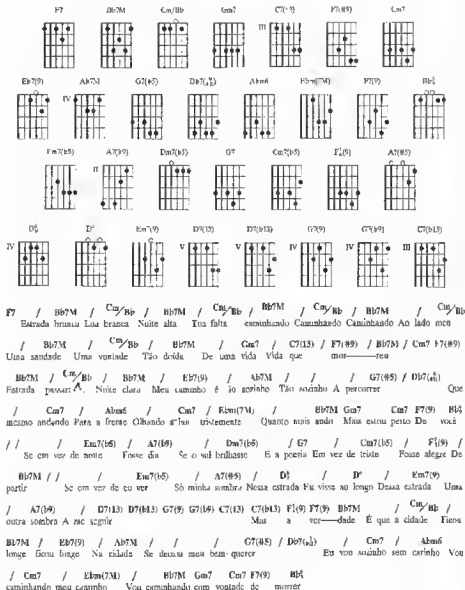 F7 Bb7M Cm/Bb Gm7 C7(13) F7(#5) Cm7
III
Eb7(9) Ab7M G7(#5) Db7 Abm6 Ebm(7M) F7(9)
IV
Em7(b5) A7(b9) Dm7(b5) G7 Cm7(b5) A7(#5)
II
D° Em7(9) D7(13) D7(b13) G7(9) G7(b9) C7(b13)
IV V V IV IV III
F7 / Bb7M / Cm/Bb / Bb7M / Cm/Bb / Bb7M / Cm/Bb / Bb7M / Cm/Bb
Estrada branca Lua branca Noite alta Tua falta caminhando Caminhando Caminhando Ao lado meu
/ Bb7M / Cm/Bb / Bb7M / Gm7 / C7(13) / F7(#9) / Bb7M / Cm7 F7(#9)
Uma saudade Uma vontade Tão doída De uma vida Vida que mor——reu
Bb7M / Cm/Bb / Bb7M / Eb7(9) / Ab7M / / / G7(#5) / Db7
Estrada Noite clara Meu caminho é tão sozinho Tão sozinho A percorrer Que
/ Cm7 / Abm6 / Cm7 / Ebm(7M) / Bb7M Gm7 Cm7 F7(9)
mesmo andando Para a frente Olhando a lua tristemente Quanto mais ando Mais estou perto De você
/ / / Em7(b5) / A7(b9) / Dm7(b5) / G7 / Cm7(b5) / /
Se em vez de noite Fosse dia Se o sol brilhasse E a poesia Em vez de triste Fosse alegre De
Bb7M / / / Em7(b5) / A7(#5) / / D° / Em7(9)
partir Se em vez de eu ver Só minha sombra Nessa estrada Eu visse ao longo Dessa estrada Uma
/ A7(b9) / D7(13) D7(b13) G7(9) G7(b9) C7(13) C7(b13) F7(9) Bb7M / Cm/Bb /
outra sombra A me seguir Mas a ver——dade É que a cidade Ficou
Bb7M / Eb7(9) / Ab7M / / / G7(#5) / Db7 / Cm7 / Abm6
longe ficou longe Na cidade Se deixou meu bem-querer Eu vou sozinho sem carinho Vou
/ Cm7 / Ebm(7M) / Bb7M Gm7 Cm7 F7(9)
caminhando meu caminho Vou caminhando com vontade de morrer